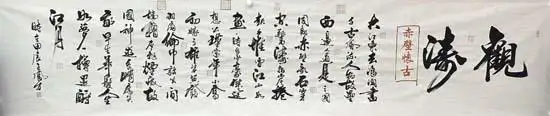 觀濤
赤壁懷古
大江東去浪淘盡
千古風流人物故壘
西邊人道是三國
周郎赤壁亂石穿
空驚濤拍岸捲
起千堆雪江山如
畫一時多少豪傑遙
想公瑾當年小喬
初嫁了雄姿英發
羽扇綸巾談笑間
檣櫓灰飛煙滅故
國神遊多情應笑
我早生華髮人生
如夢一樽還酹
江月